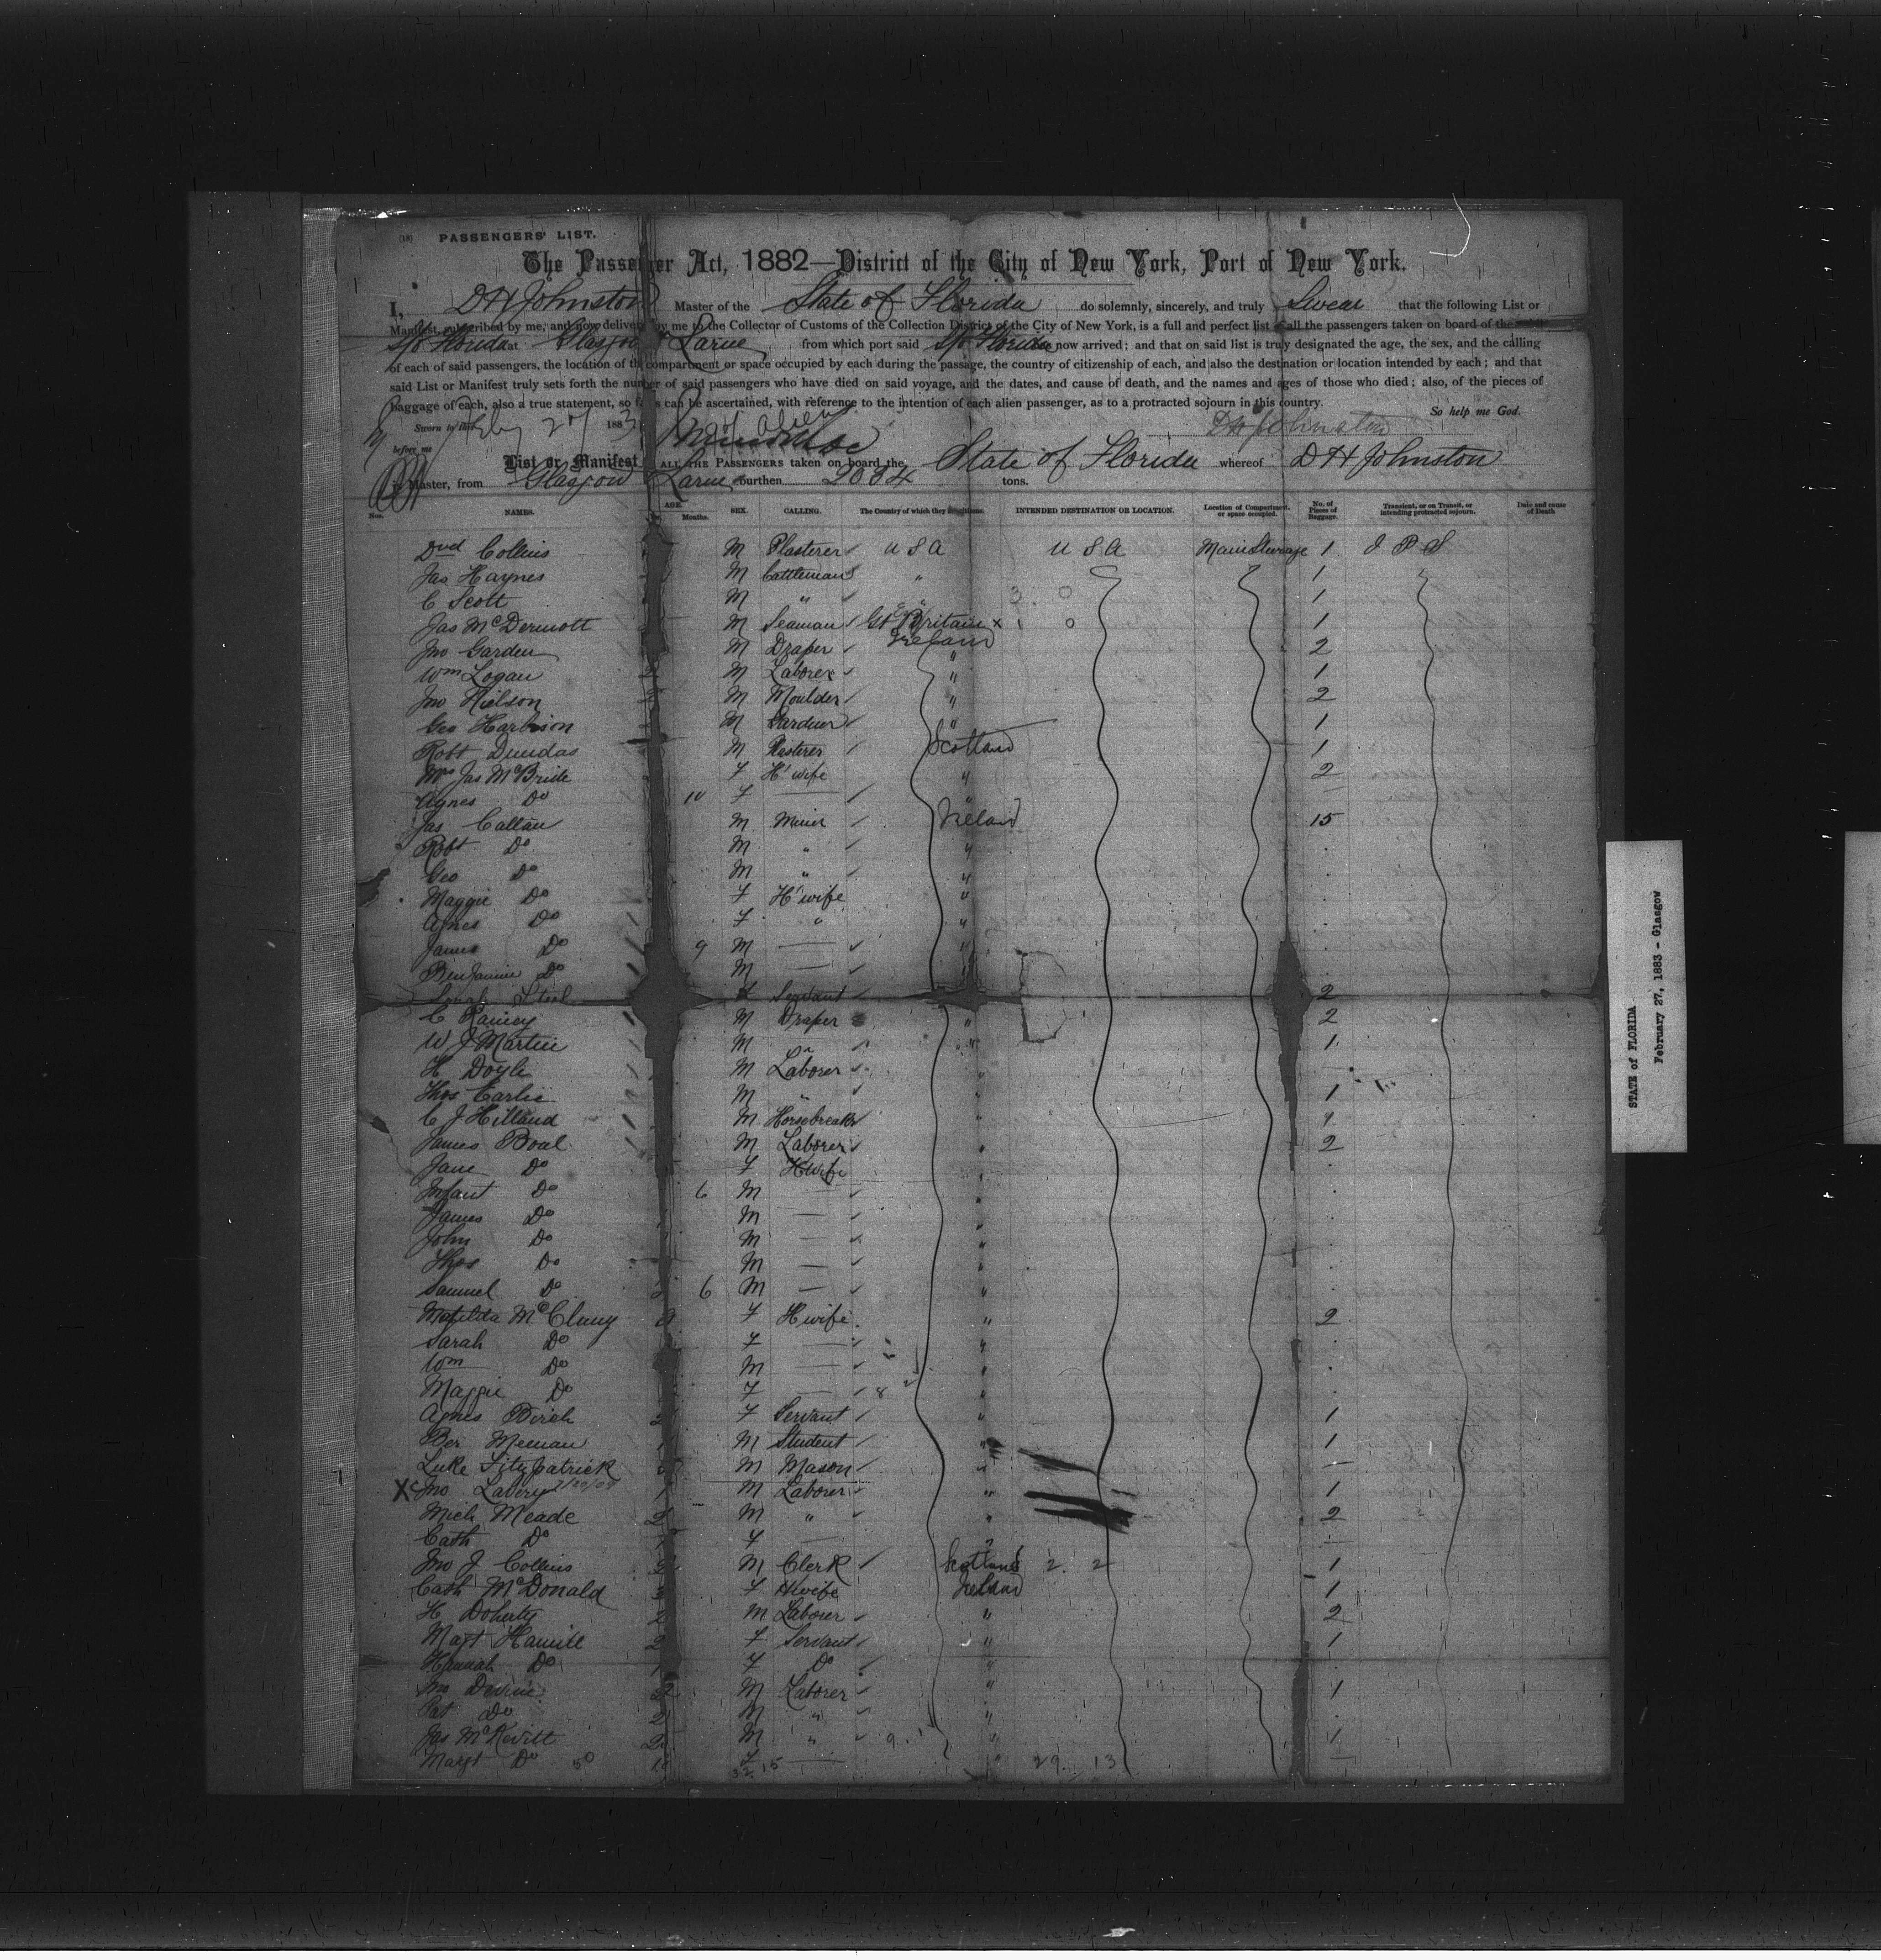 (18) PASSENGERS' LIST.
The Passenger Act, 1882—District of the City of New York, Port of New York.
I, D H Johnston Master of the State of Florida do solemnly, sincerely, and truly Swear that the following List or
Manifest, subscribed by me, and now delivered by me to the Collector of Customs of the Collection District of the City of New York, is a full and perfect list of all the passengers taken on board of the
S/o Florida at Glasgow & Larne from which port said S/o Florida now arrived; and that on said list is truly designated the age, the sex, and the calling
of each of said passengers, the location of the compartment or space occupied by each during the passage, the country of citizenship of each, and also the destination or location intended by each; and that
said List or Manifest truly sets forth the number of said passengers who have died on said voyage, and the dates, and cause of death, and the names and ages of those who died; also, of the pieces of
baggage of each, also a true statement, so far as can be ascertained, with reference to the intention of each alien passenger, as to a protracted sojourn in this country.
So help me God.
Sworn to this Feby 27 1883 D H Johnston
before me
List or Manifest ALL THE PASSENGERS taken on board the State of Florida whereof D H Johnston
is Master, from Glasgow & Larne burthen 2034 tons.
Nos. NAMES. AGE. Months. SEX. CALLING. The Country of which they are citizens. INTENDED DESTINATION OR LOCATION. Location of Compartment or space occupied. No. of Pieces of Baggage. Transient, or on Transit, or intending protracted sojourn. Date and cause of Death
Dvd Collins M Plasterer U S A U S A Main Steerage 1 I P S
Jas Haynes M Cattleman " 1
C Scott M " 3 0 1
Jas McDermott M Seaman Gt Britain x 1 0 1
Jno Garden M Draper Ireland 2
Wm Logan M Laborer " 1
Jno Nielson M Moulder " 2
Geo Harbison M Gardner " 1
Robt Dundas M Plasterer Scotland 1
Mrs Jas McBride F H'wife " 2
Agnes Do 10 F — "
Jas Callan M Miner Ireland 15
Robt Do M " "
Geo Do M " "
Maggie Do F H'wife "
Agnes Do F " "
James Do 9 M — "
Benjamin Do M —
Sarah Steel F Servant 2
C Rainey M Draper " 2
W J Martin M " " 1
H Doyle M Laborer " —
Thos Carlie M " " 1
C J Hilland M Horsebreaker " 1
James Boal M Laborer " 2
Jane Do F H'wife
Infant Do 6 M — "
James Do M — "
John Do M — "
Thos Do M — "
Samuel Do 6 M — "
Matilda McClung F H'wife " 2
Sarah Do F — "
Wm Do M — "
Maggie Do F — 8 "
Agnes Birch F Servant " 1
Ber Meenan M Student " 1
Luke Fitzpatrick M Mason " —
X Jno Lavery M Laborer " 1
Mich Meade M " " 2
Cath Do F — "
Jno J Collins M Clerk Scotland 2 2 1
Cath McDonald F H'wife Ireland 1
H Doherty M Laborer " 2
Magt Hamill F Servant " 1
Hannah Do F Do "
Jno Devine M Laborer " 1
Pat Do M " "
Jas McKevitt M " 9 " 1
Margt Do 50 F — " 29 13 —
32 15
STATE of FLORIDA
February 27, 1883 - Glasgow